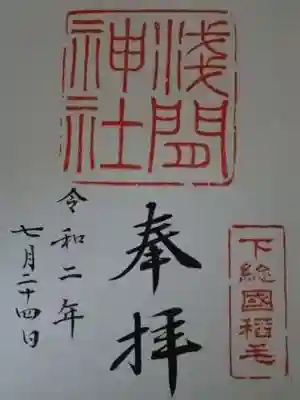 浅間
神社
下総國稲毛
奉拝
令和二年
七月二十四日